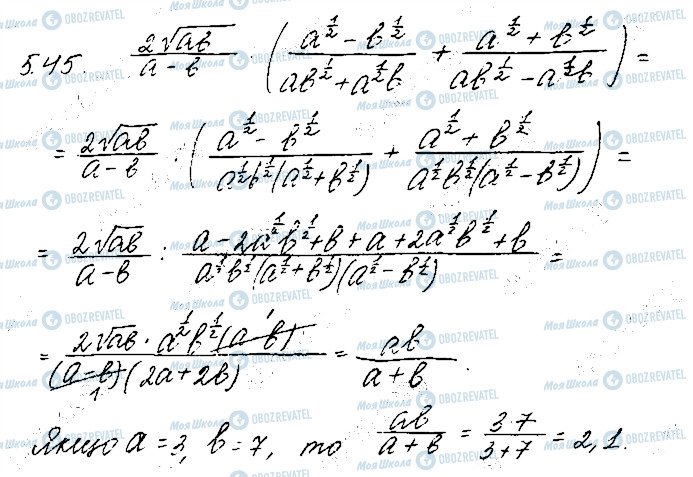 5.45. \frac{2\sqrt{ab}}{a-b} \left( \frac{a^{\frac{1}{2}} - b^{\frac{1}{2}}}{ab^{\frac{1}{2}} + a^{\frac{1}{2}}b} + \frac{a^{\frac{1}{2}} + b^{\frac{1}{2}}}{ab^{\frac{1}{2}} - a^{\frac{1}{2}}b} \right) =
= \frac{2\sqrt{ab}}{a-b} : \left( \frac{a^{\frac{1}{2}} - b^{\frac{1}{2}}}{a^{\frac{1}{2}}b^{\frac{1}{2}}(a^{\frac{1}{2}} + b^{\frac{1}{2}})} + \frac{a^{\frac{1}{2}} + b^{\frac{1}{2}}}{a^{\frac{1}{2}}b^{\frac{1}{2}}(a^{\frac{1}{2}} - b^{\frac{1}{2}})} \right) =
= \frac{2\sqrt{ab}}{a-b} : \frac{a - 2a^{\frac{1}{2}}b^{\frac{1}{2}} + b + a + 2a^{\frac{1}{2}}b^{\frac{1}{2}} + b}{a^{\frac{1}{2}}b^{\frac{1}{2}}(a^{\frac{1}{2}} + b^{\frac{1}{2}})(a^{\frac{1}{2}} - b^{\frac{1}{2}})} =
= \frac{2\sqrt{ab} \cdot a^{\frac{1}{2}}b^{\frac{1}{2}}(a-b)}{(a-b)(2a+2b)} = \frac{ab}{a+b}.
Якщо a = 3, b = 7, то \frac{ab}{a+b} = \frac{3 \cdot 7}{3+7} = 2,1.